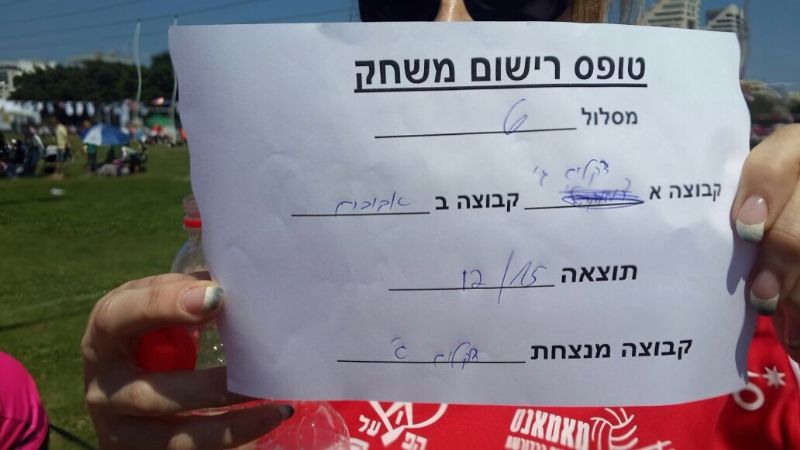 טופס רישום משחק
מסלול 6
קבוצה א דקלים ג' קבוצה ב אביבים
תוצאה 12/15
קבוצה מנצחת דקלים ג'
מאמאנט
הפועל